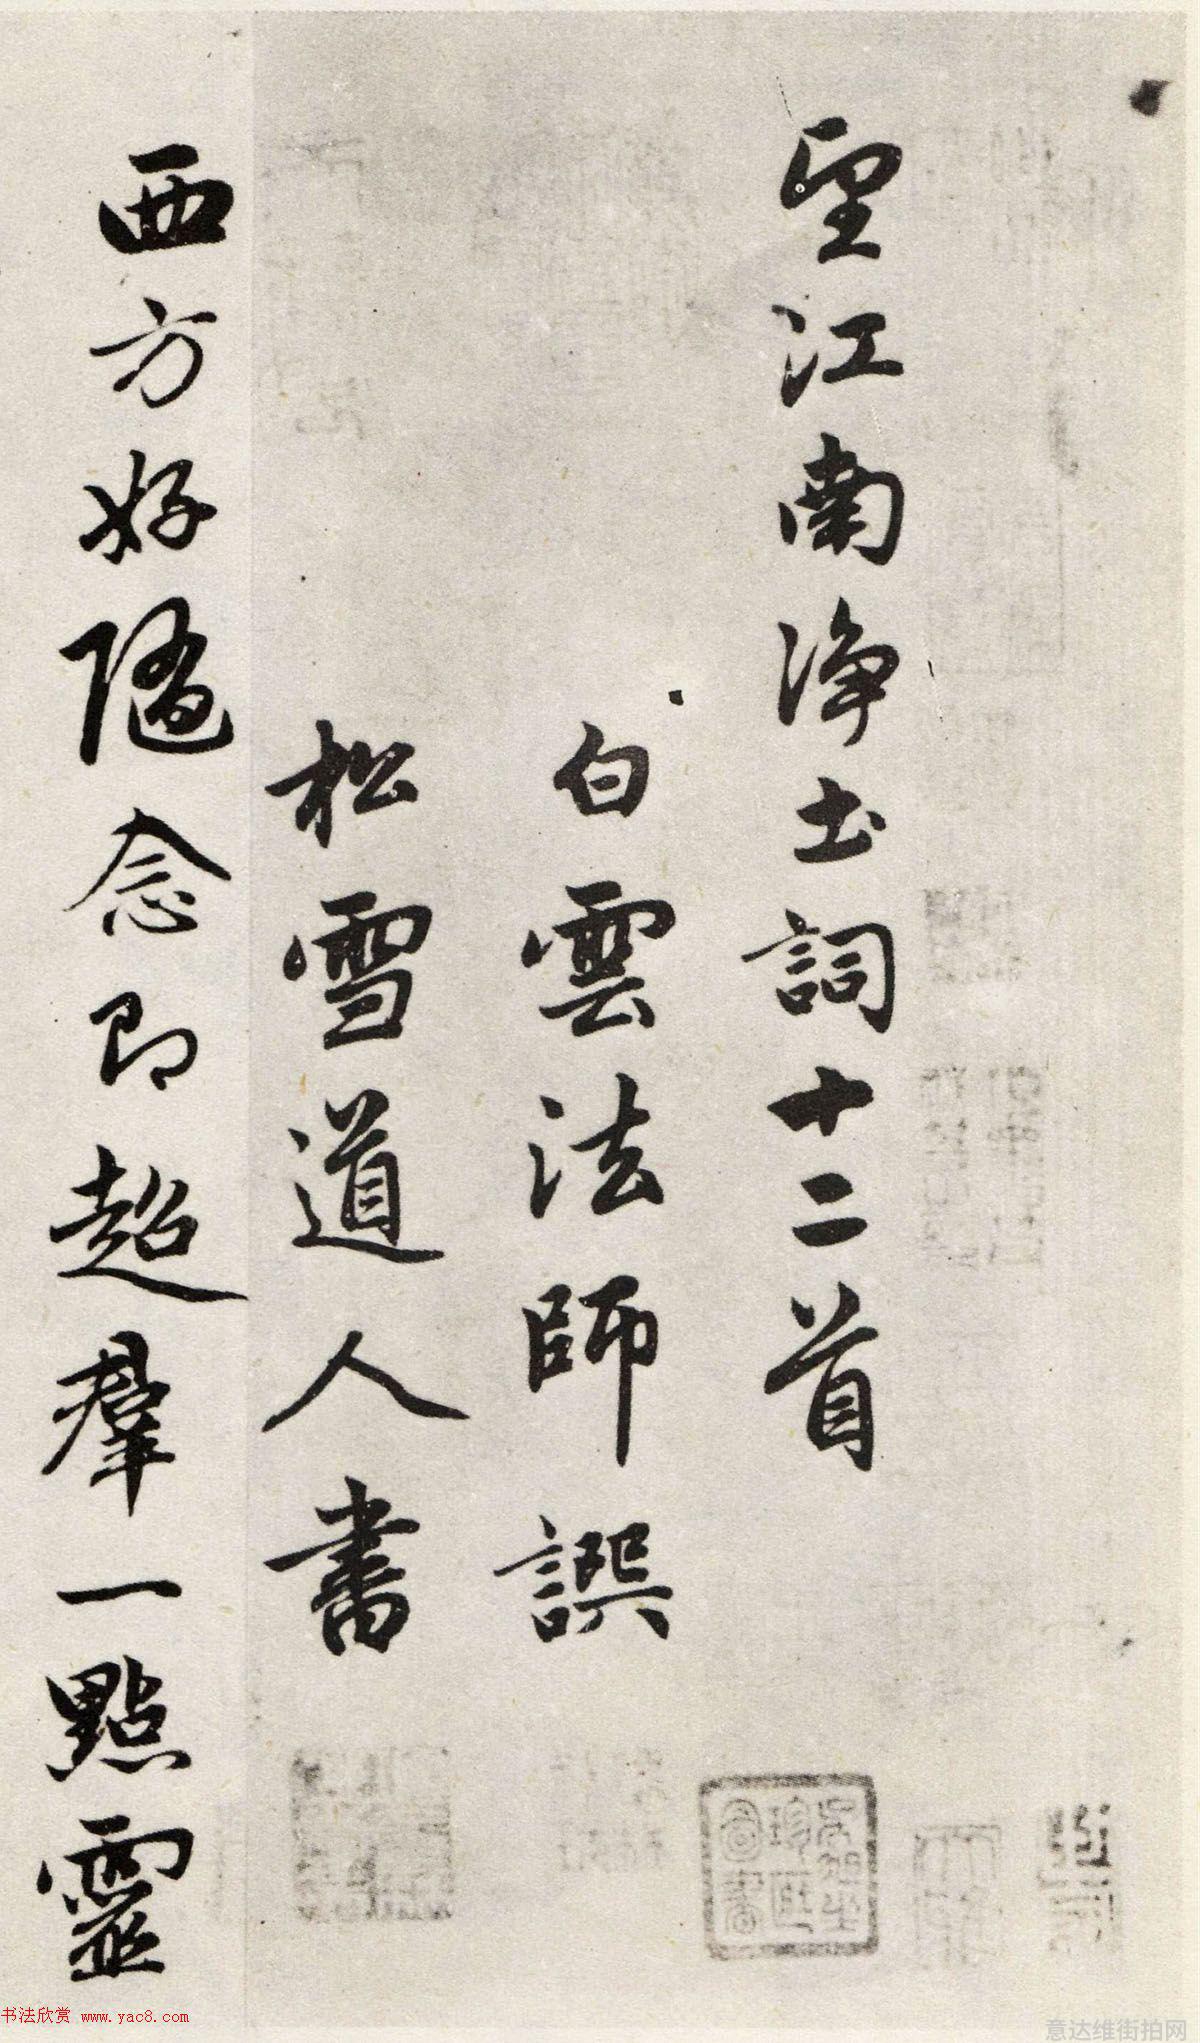 望江南淨土詞十二首
白雲法師譔
松雪道人書
西方好隨念即超羣一點靈
书法欣赏 www.yac8.com
意达维街拍网